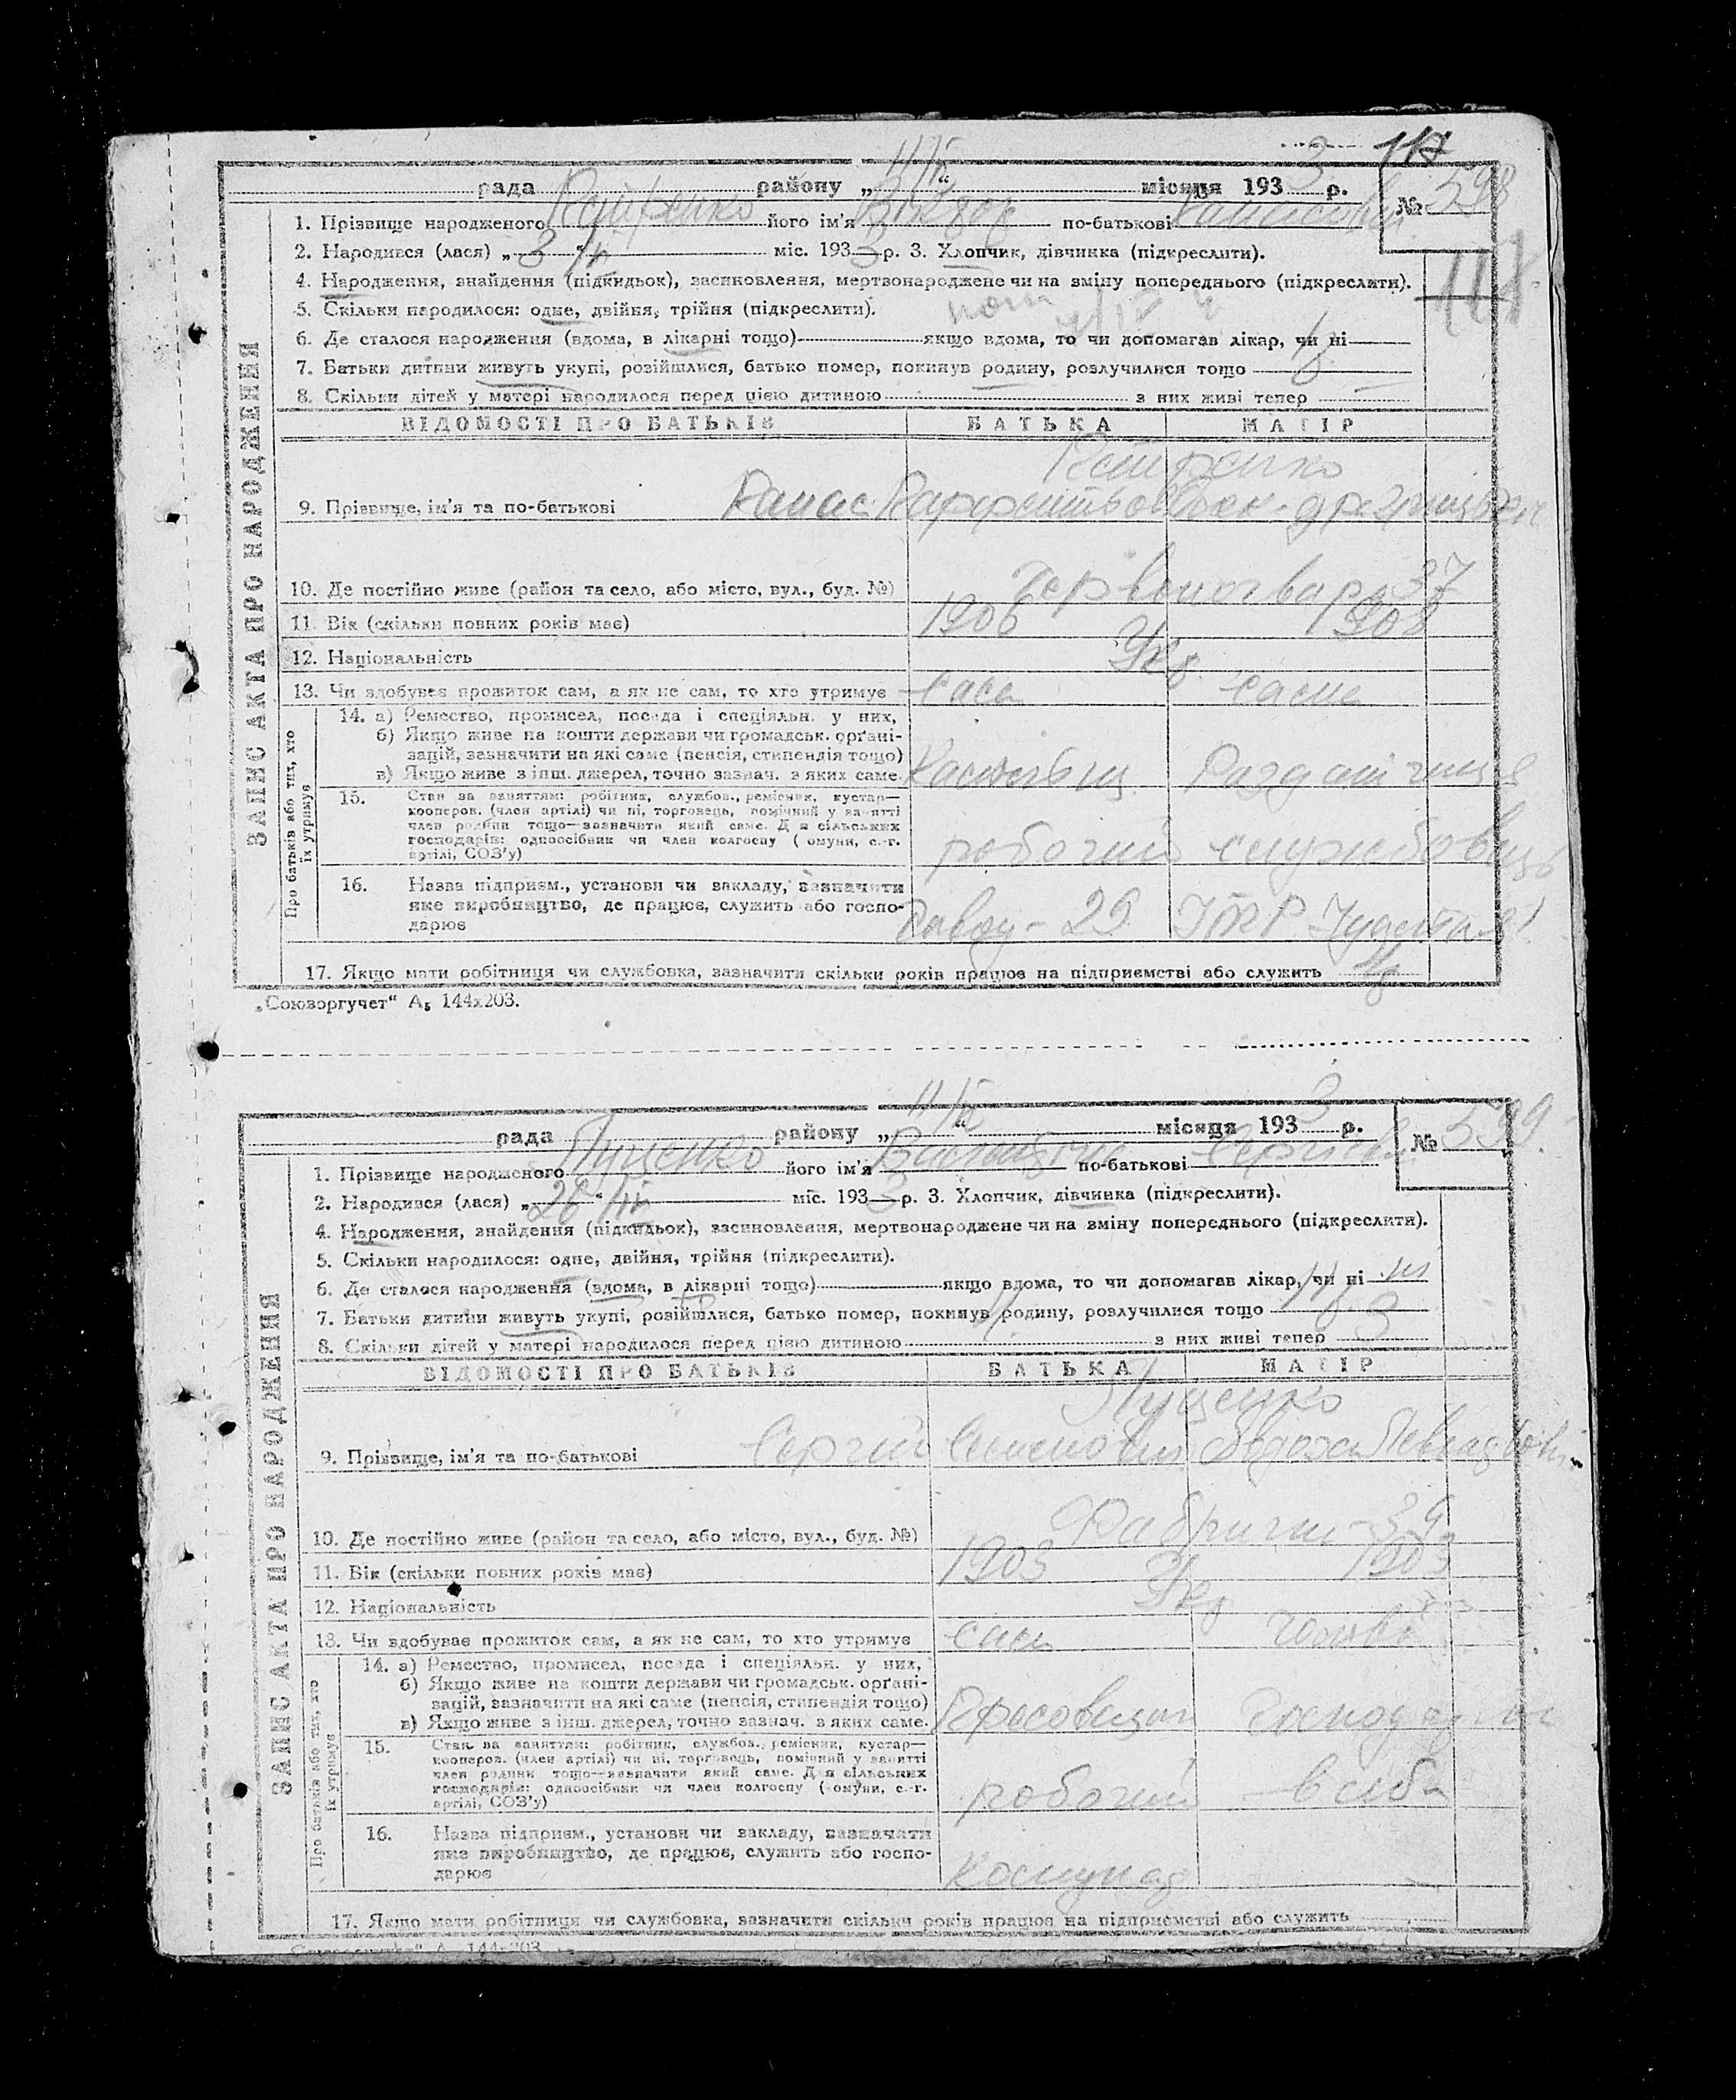 117
рада району „11/IV“ місяця 1933 р.
№ 598
1. Прізвище народженого його ім'я Віктор по-батькові
2. Народився (лася) „3/IV міс. 1933 р. 3. Хлопчик, дівчинка (підкреслити).
4. Народження, знайдення (підкидьок), засиновлення, мертвонароджене чи на зміну попереднього (підкреслити).
5. Скільки народилося: одне, двійня, трійня (підкреслити).
6. Де сталося народження (вдома, в лікарні тощо) якщо вдома, то чи допомагав лікар, чи ні
7. Батьки дитини живуть укупі, розійшлися, батько помер, покинув родину, розлучилися тощо
8. Скільки дітей у матері народилося перед цією дитиною з них живі тепер —
ЗАПИС АКТА ПРО НАРОДЖЕННЯ
ВІДОМОСТІ ПРО БАТЬКІВ БАТЬКА МАТІР
9. Прізвище, ім'я та по-батькові Панас
10. Де постійно живе (район та село, або місто, вул., буд. №) 37
11. Вік (скільки повних років має) 1906 1908
12. Національність Укр
13. Чи здобуває прожиток сам, а як не сам, то хто утримує сам сама
Про батьків або тих, хто їх утримує
14. а) Ремество, промисел, посада і спеціяльн. у них,
б) Якщо живе на кошти держави чи громадськ. органі-
зацій, зазначити на які саме (пенсія, стипендія тощо)
в) Якщо живе з інш. джерел, точно зазнач. з яких саме.
15. Стан за заняттям: робітник, службов., ремісник, кустар—
кооперов. (член артілі) чи ні, торговець, помічний у занятті
член родини тощо—зазначити який саме. Для сільських
господарів: одноосібник чи член колгоспу (комуни, с.-г.
артілі, СОЗ'у)
робочий службовець
16. Назва підприєм., установи чи закладу, зазначити
яке виробництво, де працює, служить або госпо-
дарює
Завод - 29
17. Якщо мати робітниця чи службовка, зазначити скільки років працює на підприємстві або служить
„Союзоргучет“ А5 144х203.
рада району „11/IV“ місяця 1933 р.
№ 599
1. Прізвище народженого Луценко його ім'я по-батькові Сергіївн
2. Народився (лася) „26/III міс. 1933 р. 3. Хлопчик, дівчинка (підкреслити).
4. Народження, знайдення (підкидьок), засиновлення, мертвонароджене чи на зміну попереднього (підкреслити).
5. Скільки народилося: одне, двійня, трійня (підкреслити).
6. Де сталося народження (вдома, в лікарні тощо) якщо вдома, то чи допомагав лікар, чи ні ні
7. Батьки дитини живуть укупі, розійшлися, батько помер, покинув родину, розлучилися тощо
8. Скільки дітей у матері народилося перед цією дитиною з них живі тепер 3
ЗАПИС АКТА ПРО НАРОДЖЕННЯ
ВІДОМОСТІ ПРО БАТЬКІВ БАТЬКА МАТІР
Луценко
9. Прізвище, ім'я та по-батькові Сергій Семенович
10. Де постійно живе (район та село, або місто, вул., буд. №) Фабричн - 39
11. Вік (скільки повних років має) 1903 1903
12. Національність Укр
13. Чи здобуває прожиток сам, а як не сам, то хто утримує сам
Про батьків або тих, хто їх утримує
14. а) Ремество, промисел, посада і спеціяльн. у них,
б) Якщо живе на кошти держави чи громадськ. органі-
зацій, зазначити на які саме (пенсія, стипендія тощо)
в) Якщо живе з інш. джерел, точно зазнач. з яких саме.
15. Стан за заняттям: робітник, службов., ремісник, кустар—
кооперов. (член артілі) чи ні, торговець, помічний у занятті
член родини тощо—зазначити який саме. Для сільських
господарів: одноосібник чи член колгоспу (комуни, с.-г.
артілі, СОЗ'у)
робочий
16. Назва підприєм., установи чи закладу, зазначити
яке виробництво, де працює, служить або госпо-
дарює
17. Якщо мати робітниця чи службовка, зазначити скільки років працює на підприємстві або служить